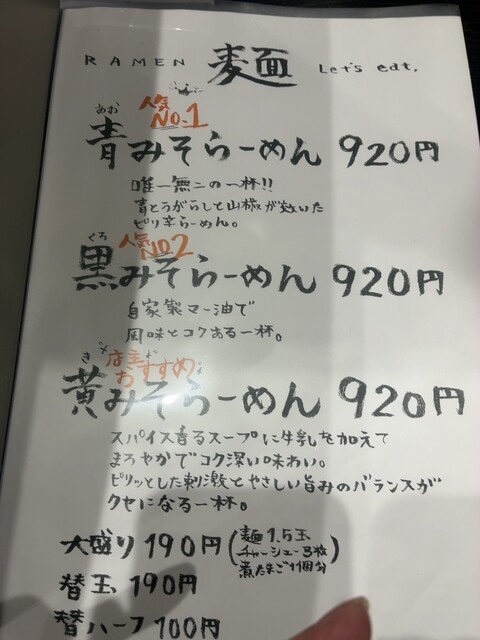 RAMEN 麺 Let's eat.
人気 NO.1
あお
青みそらーめん 920円
唯一無二の一杯!!
青とうがらしと山椒が効いた
ピリ辛らーめん。
人気 NO.2
くろ
黒みそらーめん 920円
自家製マー油で
風味とコクある一杯。
店主
おすすめ
き
黄みそらーめん 920円
スパイス香るスープに牛乳を加えて
まろやかでコク深い味わい。
ピリッとした刺激とやさしい旨みのバランスが
クセになる一杯。
大盛り 190円 (麺1.5玉
チャーシュー3枚
煮たまご1個分)
替玉 190円
替ハーフ 100円